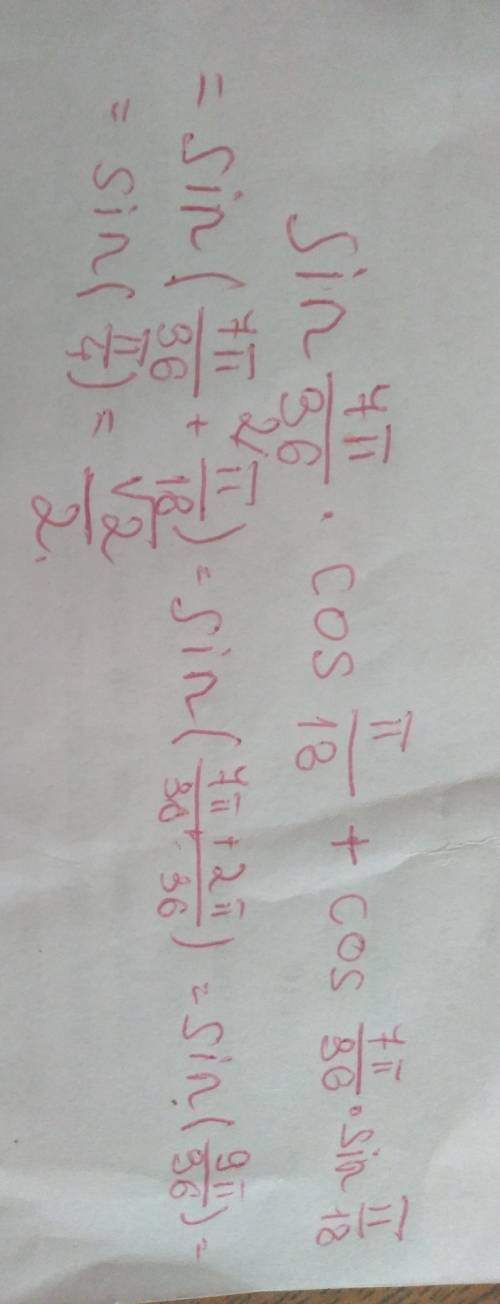 sin 7π/36 · cos π/18 + cos 7π/36 · sin π/18
= sin(7π/36 + 2·π/18) = sin(7π/36 + 2π/36) = sin(9π/36) =
= sin(π/4) = √2/2.